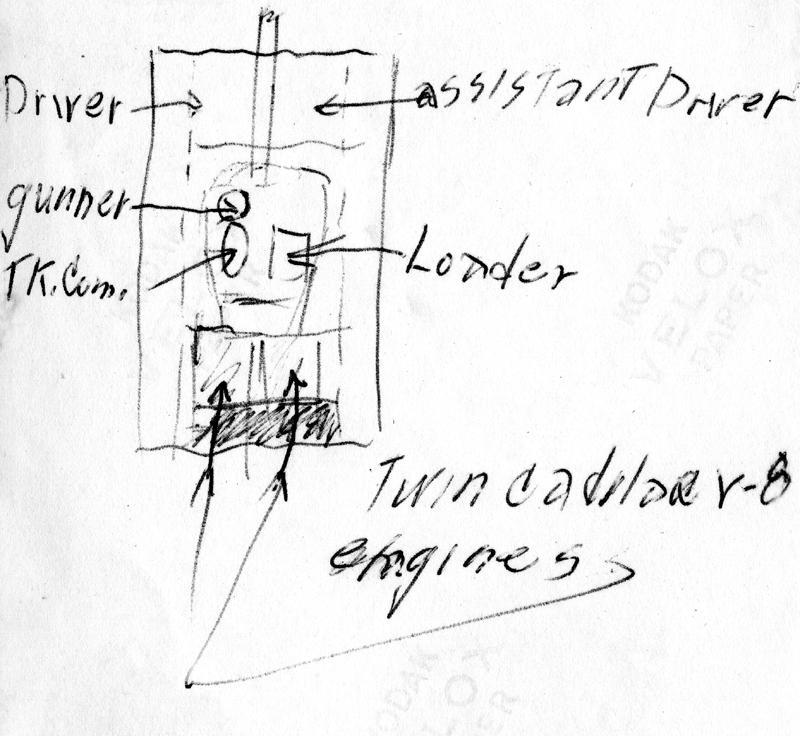 Driver
assistant Driver
gunner
TK. Com.
Loader
Twin cadilac v-8
engines
KODAK
VELOX
PAPER
KODAK
VELOX
PAPER